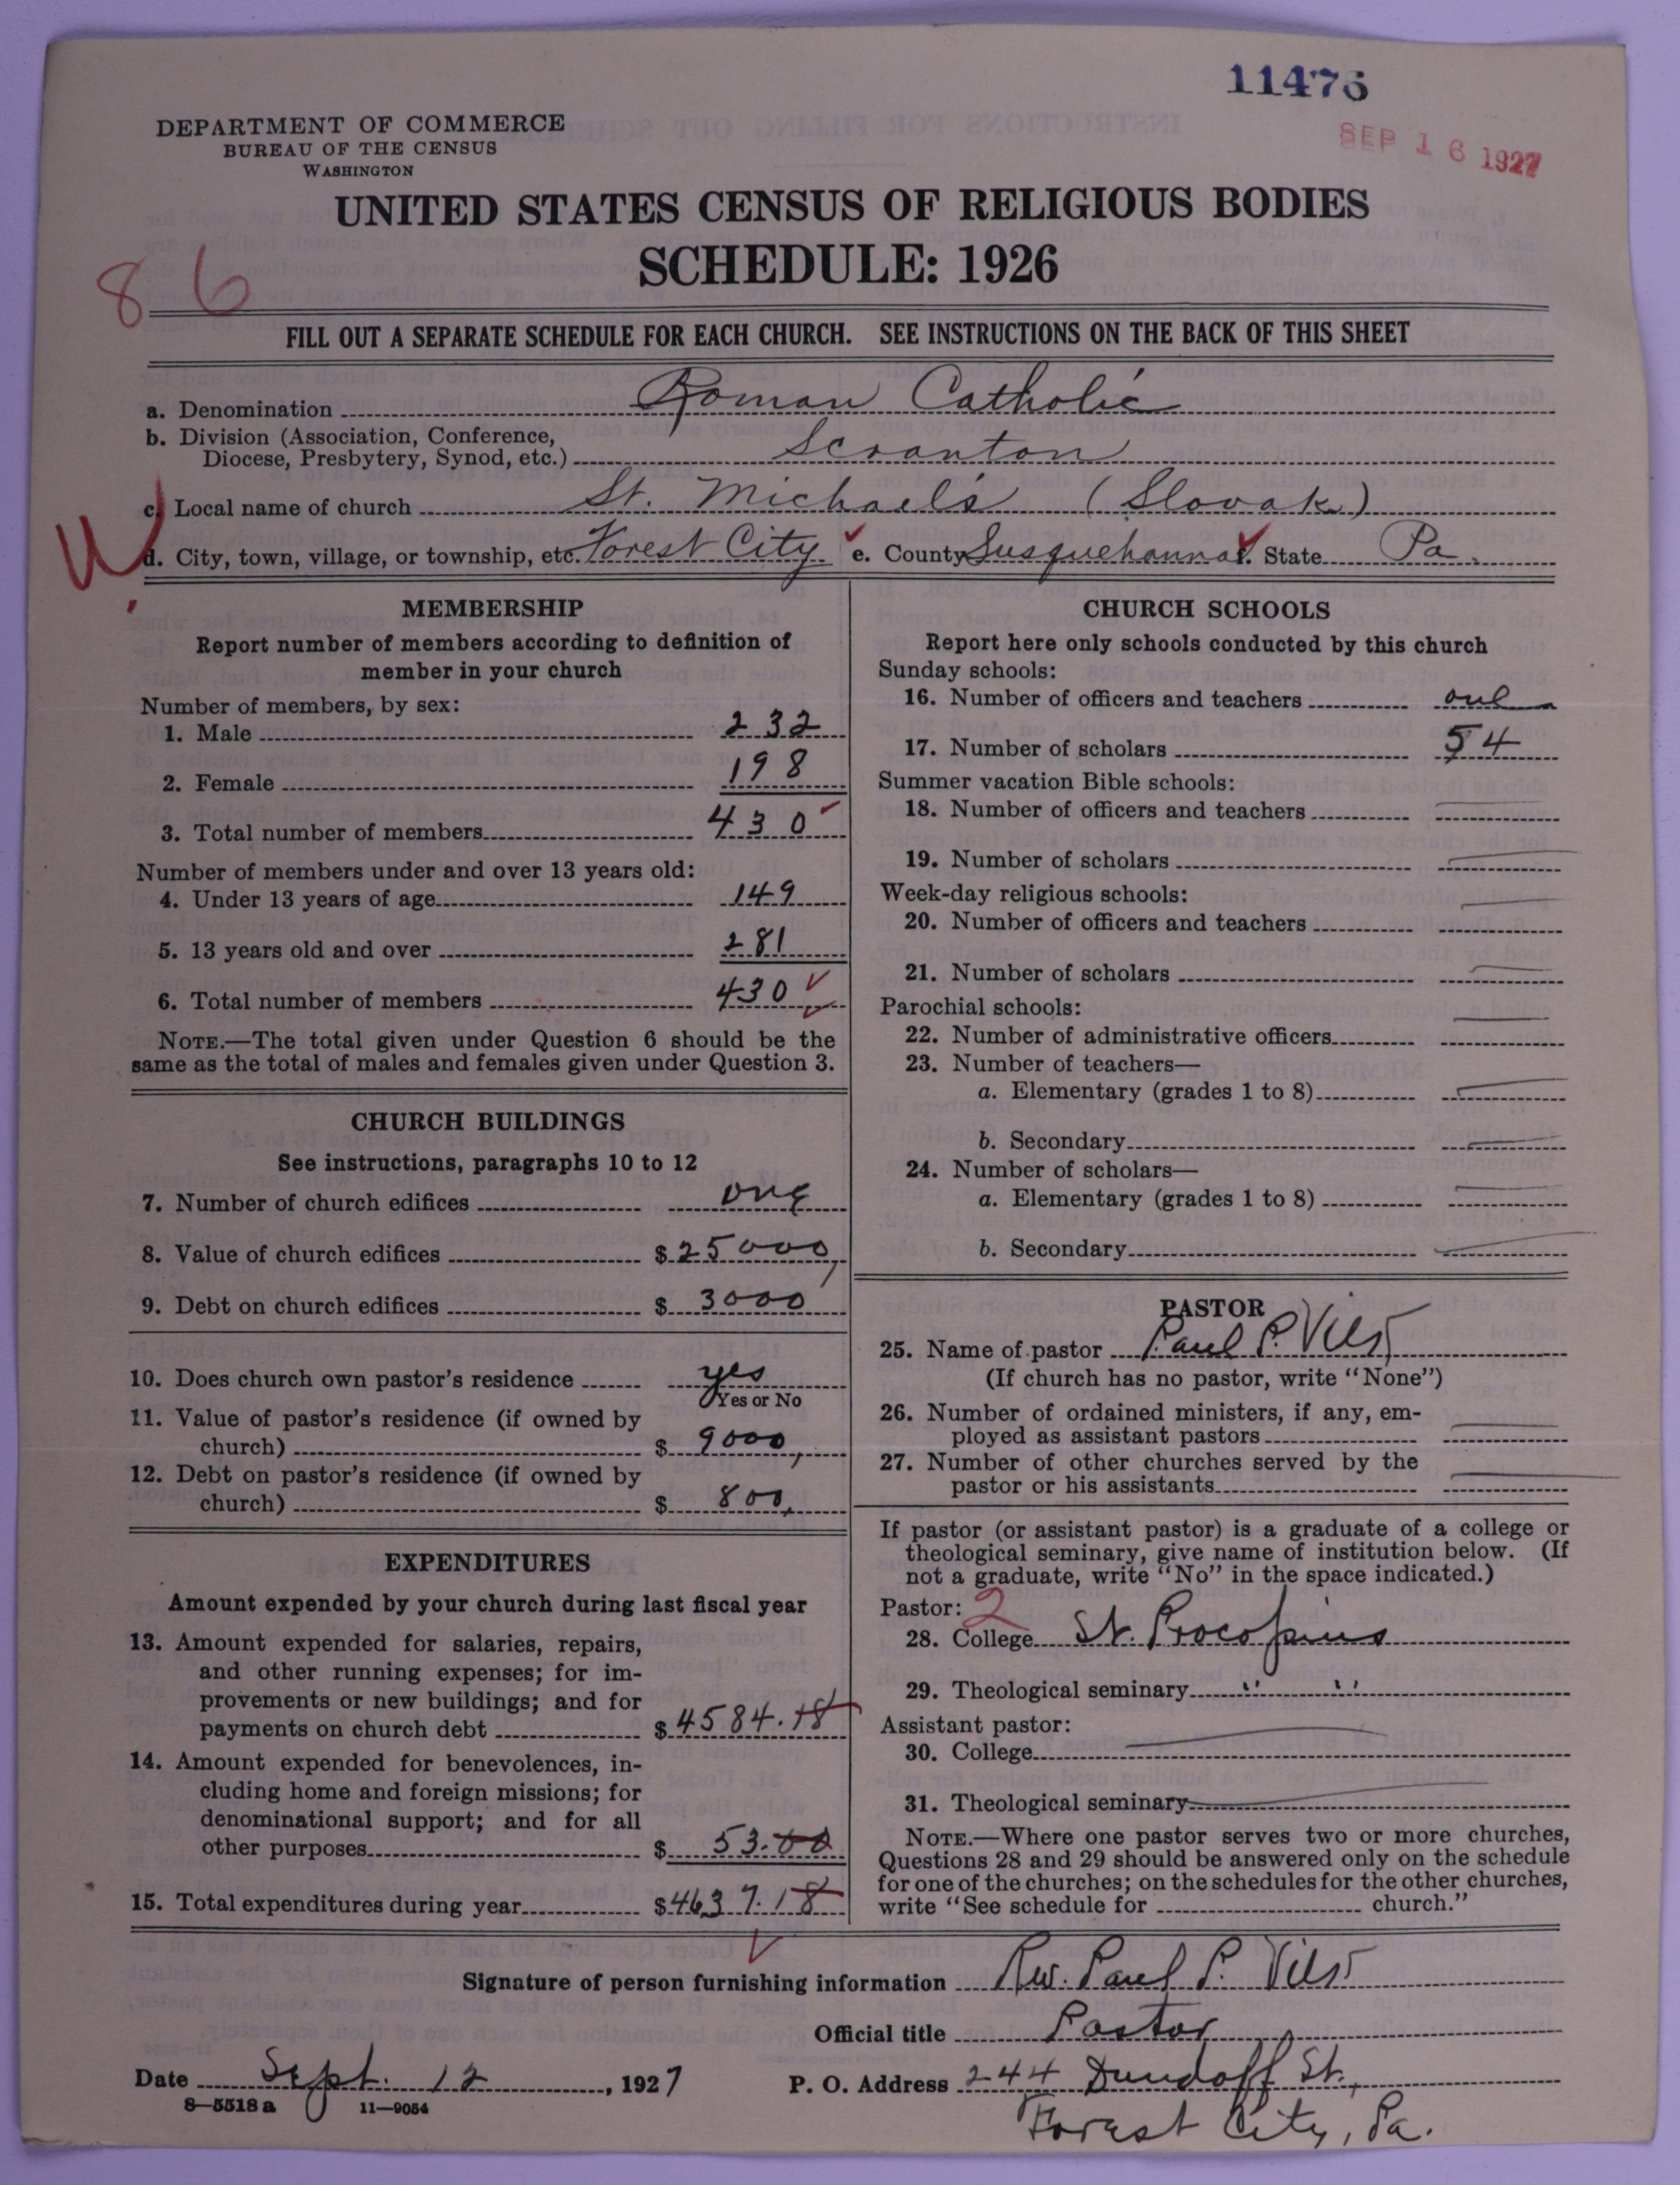 11476
SEP 16 1927
DEPARTMENT OF COMMERCE
BUREAU OF THE CENSUS
WASHINGTON
UNITED STATES CENSUS OF RELIGIOUS BODIES
SCHEDULE: 1926
86
FILL OUT A SEPARATE SCHEDULE FOR EACH CHURCH. SEE INSTRUCTIONS ON THE BACK OF THIS SHEET
a. Denomination Roman Catholic
b. Division (Association, Conference,
Diocese, Presbytery, Synod, etc.) Scranton
c. Local name of church St. Michael's (Slovak)
d. City, town, village, or township, etc. Forest City e. County Susquehanna f. State Pa.
MEMBERSHIP
Report number of members according to definition of
member in your church
Number of members, by sex:
1. Male 232
2. Female 198
3. Total number of members 430
Number of members under and over 13 years old:
4. Under 13 years of age 149
5. 13 years old and over 281
6. Total number of members 430
NOTE.—The total given under Question 6 should be the
same as the total of males and females given under Question 3.
CHURCH BUILDINGS
See instructions, paragraphs 10 to 12
7. Number of church edifices one
8. Value of church edifices $25000,
9. Debt on church edifices $3000
10. Does church own pastor's residence yes
Yes or No
11. Value of pastor's residence (if owned by
church) $9000,
12. Debt on pastor's residence (if owned by
church) $800,
EXPENDITURES
Amount expended by your church during last fiscal year
13. Amount expended for salaries, repairs,
and other running expenses; for im-
provements or new buildings; and for
payments on church debt $4584.18
14. Amount expended for benevolences, in-
cluding home and foreign missions; for
denominational support; and for all
other purposes $53.00
15. Total expenditures during year $4637.18
CHURCH SCHOOLS
Report here only schools conducted by this church
Sunday schools:
16. Number of officers and teachers one
17. Number of scholars 54
Summer vacation Bible schools:
18. Number of officers and teachers
19. Number of scholars
Week-day religious schools:
20. Number of officers and teachers
21. Number of scholars
Parochial schools:
22. Number of administrative officers
23. Number of teachers—
a. Elementary (grades 1 to 8)
b. Secondary
24. Number of scholars—
a. Elementary (grades 1 to 8)
b. Secondary
PASTOR
25. Name of pastor Paul P.
(If church has no pastor, write "None")
26. Number of ordained ministers, if any, em-
ployed as assistant pastors
27. Number of other churches served by the
pastor or his assistants
If pastor (or assistant pastor) is a graduate of a college or
theological seminary, give name of institution below. (If
not a graduate, write "No" in the space indicated.)
Pastor: 2
28. College St. Procopius
29. Theological seminary " "
Assistant pastor:
30. College
31. Theological seminary
NOTE.—Where one pastor serves two or more churches,
Questions 28 and 29 should be answered only on the schedule
for one of the churches; on the schedules for the other churches,
write "See schedule for church."
Signature of person furnishing information Rev. Paul P.
Official title Pastor
Date Sept. 12, 1927
P. O. Address 244 Dundaff St.,
Forest City, Pa.
8—5518a 11—9054